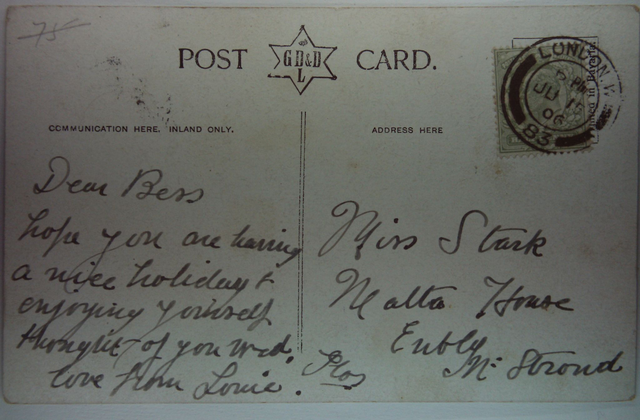 75
POST CARD.
GD&D
L
LONDON. W
5 PM
JU 15
06
83
in Bavaria
COMMUNICATION HERE. INLAND ONLY.
ADDRESS HERE
Dear Bess
hope you are having
a nice holiday &
enjoying yourself
thought of you Wed.
love from Louie.
Miss Stark
Malta House
Enbly
Nr Strond
Glos